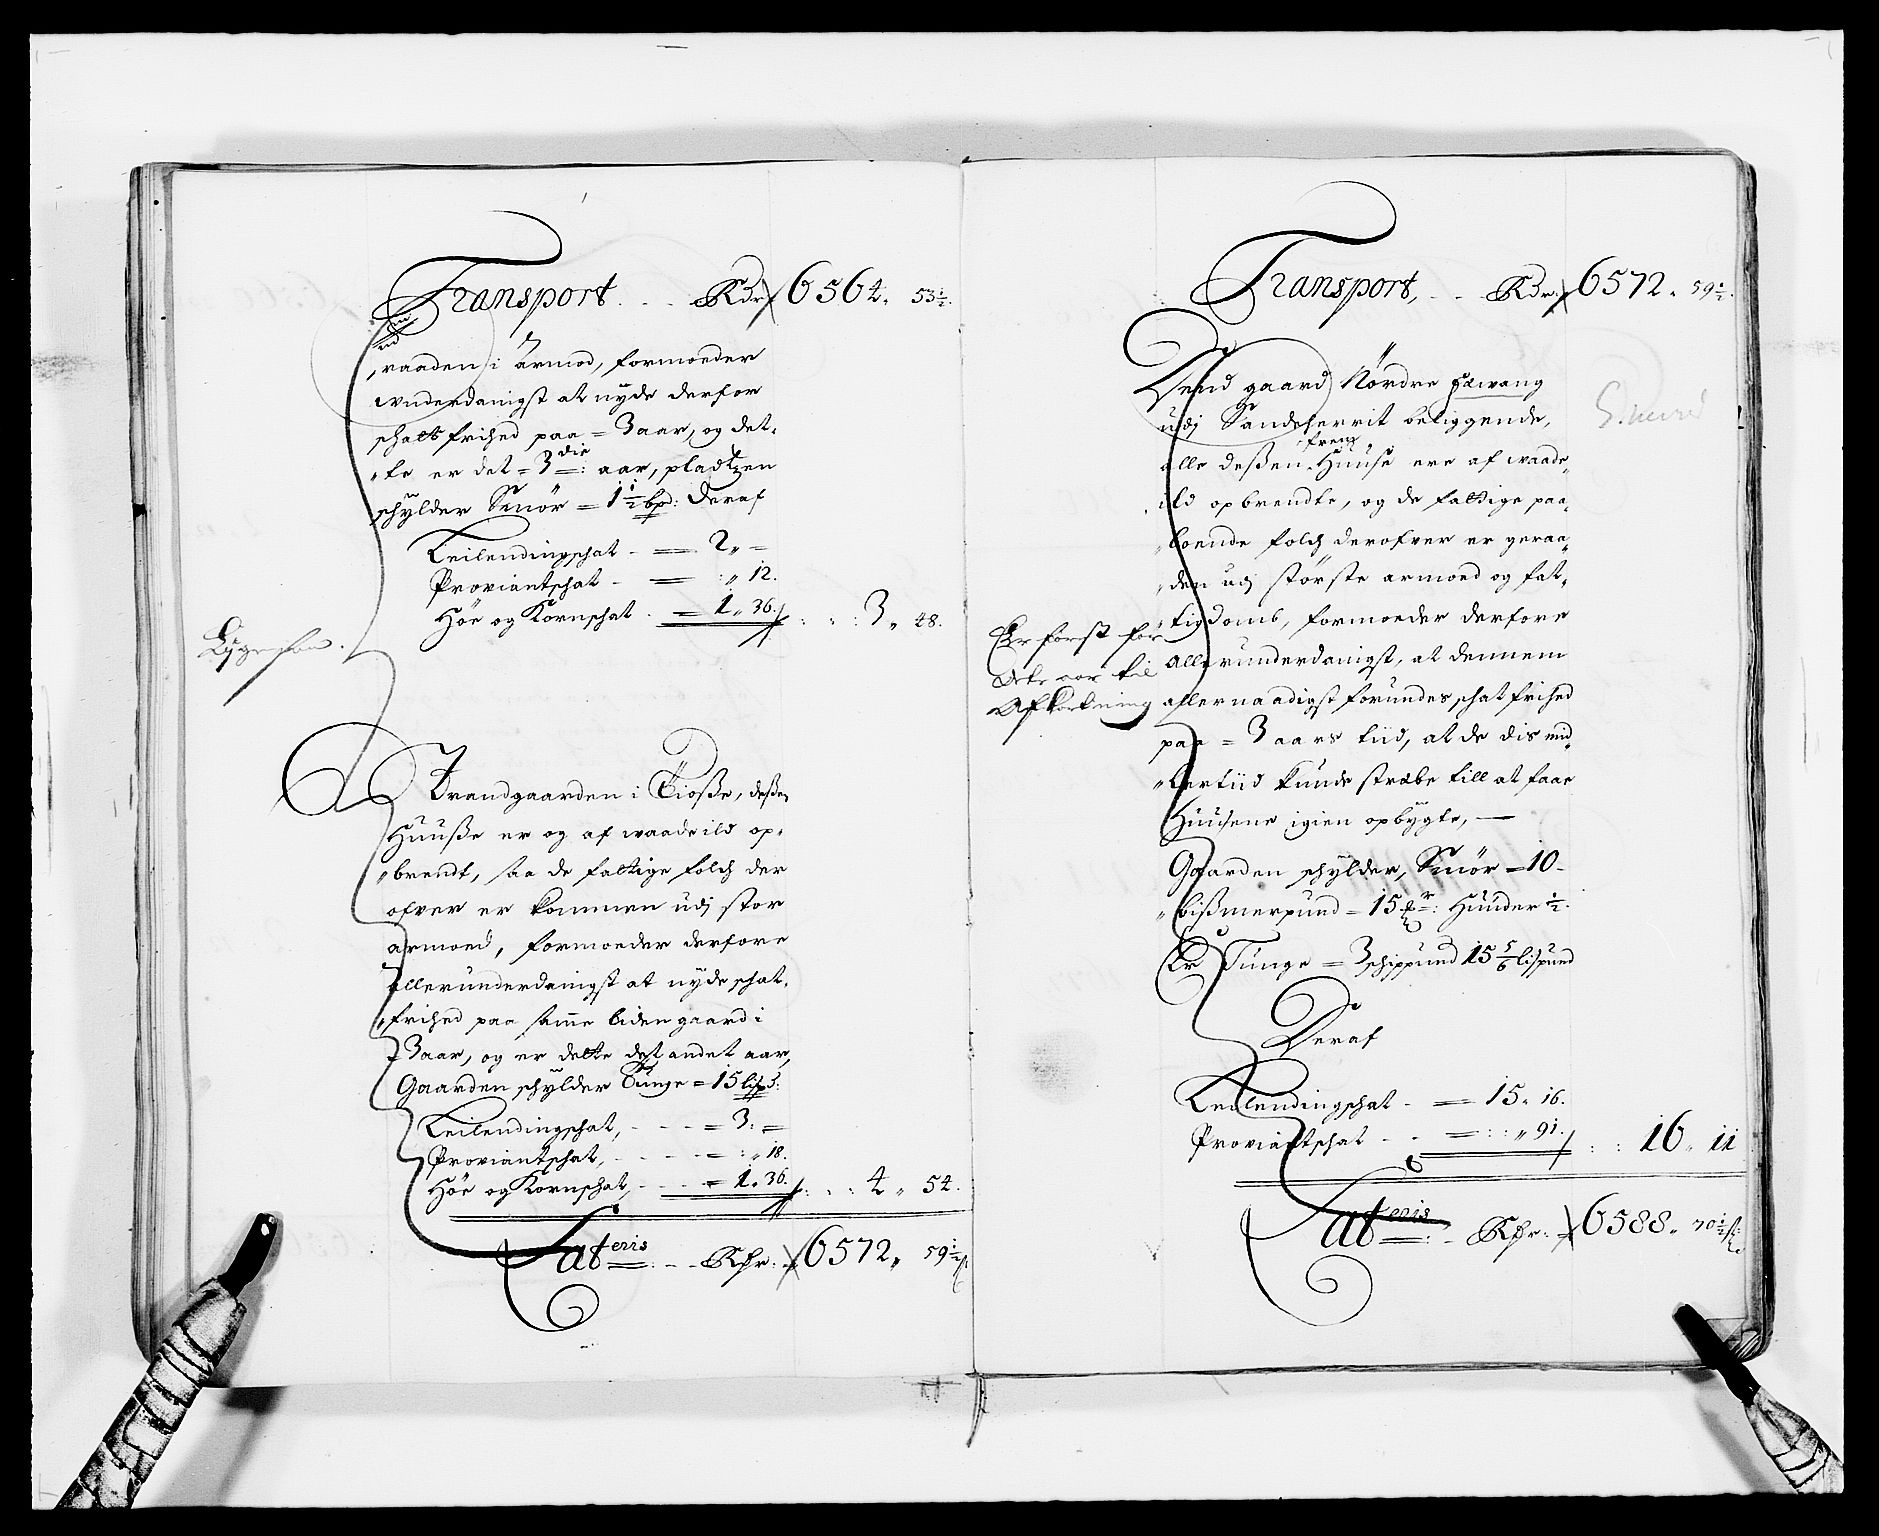 Transport. - - Rdr 6564. 53½.
raaden i armod, formoeder
underdanigst at nyde derfor
schatt frihed paa = 3 aar, og det-
te er det = 3die: aar, pladtzen
schylder Smör = 1½ bp: deraf
Leilendingschat - = 2 „ =
Proviantschat - = : „ 12.
Höe og Kornschat - = 1 „ 36. : : 3 „ 48.
Ligesom.
Strandgaarden i Tiosße, desßen
Huusße er og af waade ild op-
brendt, saa de fattige folch der
ofver er kommen udj stor
armoed, formoeder derfore
allerunderdanigst at nyde schat-
frihed paa samme liden gaard i
3 aar, og er dette det andet aar,
Gaarden schylder Tunge = 15 lispd:
Leilendingschat, - - - = 3: =
Proviantschat, - - - = : „ 18.
Höe og Kornschat, - - = 1 „ 36. : : 4 „ 54.
Lateris - - Rdr: 6572 „ 59½ s
Transport, - - Rdr: 6572 „ 59½.
Dend gaard Nördre
udj Sandeherrit beliggende,
alle desßen Huuse ere af waade
ild opbrendte, og de fattige paa-
boende folch derofver er geraa-
den udj störste armoed og fat-
tigdomb, formoeder derfore
allerunderdanigst, at dennem
allernaadigst forundes schat frihed
paa = 3 aars tiid, at de dis mid-
lertiid kunde stræbe till at faae
Huusene igien opbygte, —
Er først for
dete aar til
Afkortning
Gaarden schylder, Smör = 10-
bißmerpund = 15 Huuder ½.
Er Tunge = 3 schippund 15 5/6 lispund
Deraf
Leilendingschat - = 15 „ 16.
Proviantschat - - = : : „ 91. : : 16 „ 11
Lateris - Rdr: 6588 „ 70½ s